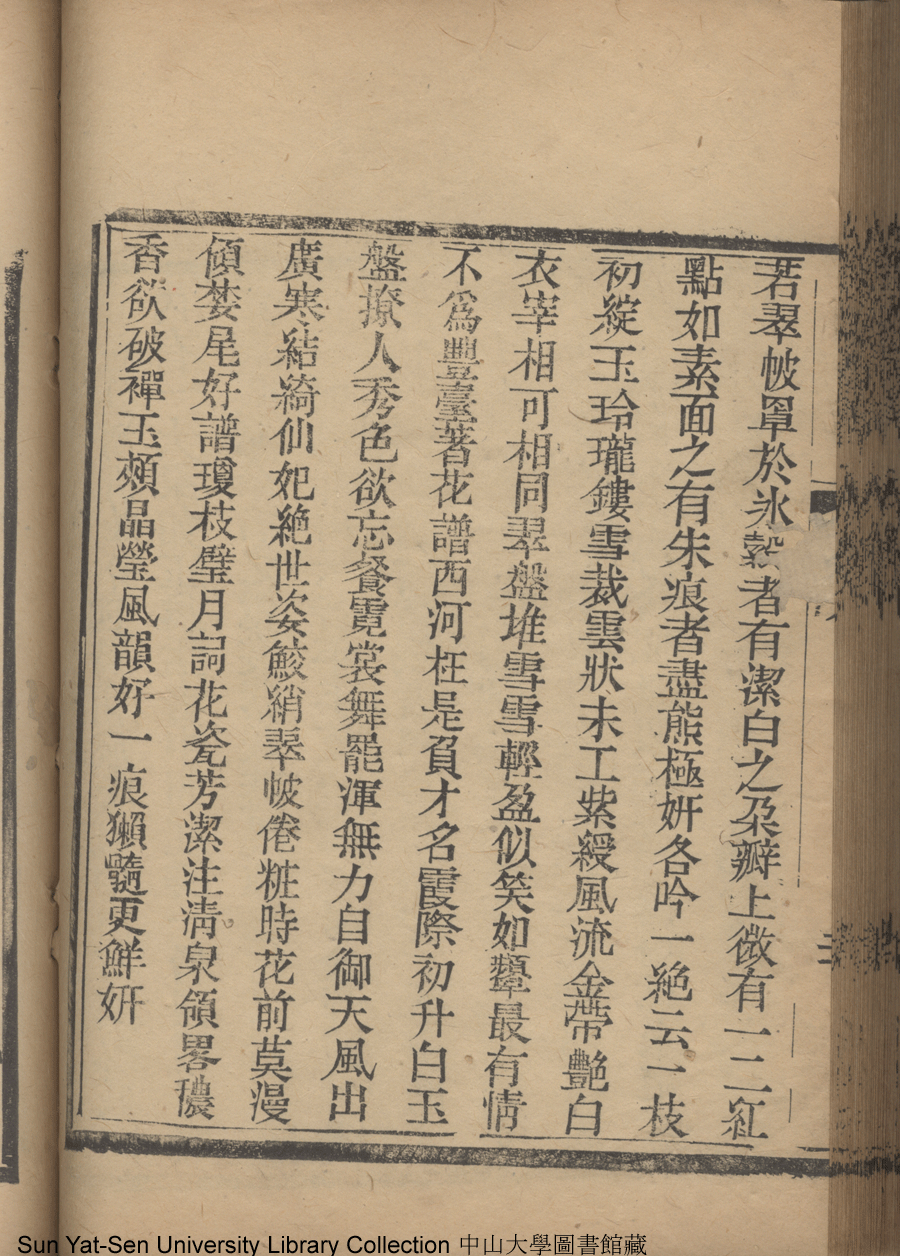 若翠帔罩於氷縠者有潔白之朶瓣上微有一二紅
點如素面之有朱痕者盡態極妍各吟一絶云一枝
初綻玉玲瓏鏤雪裁雲狀未工紫綬風流金帶艷白
衣宰相可相同翠盤堆雪雪輕盈似笑如顰最有情
不爲豐臺著花譜西河枉是負才名霞際初升白玉
盤撩人秀色欲忘餐霓裳舞罷渾無力自御天風出
廣寒結綺仙妃絶世姿鮫綃翠帔倦粧時花前莫漫
傾婪尾好譜瓊枝璧月詞花瓷芳潔注淸泉領畧穠
香欲破禪玉頰晶瑩風韻好一痕獺髓更鮮妍
Sun Yat-Sen University Library Collection 中山大學圖書館藏